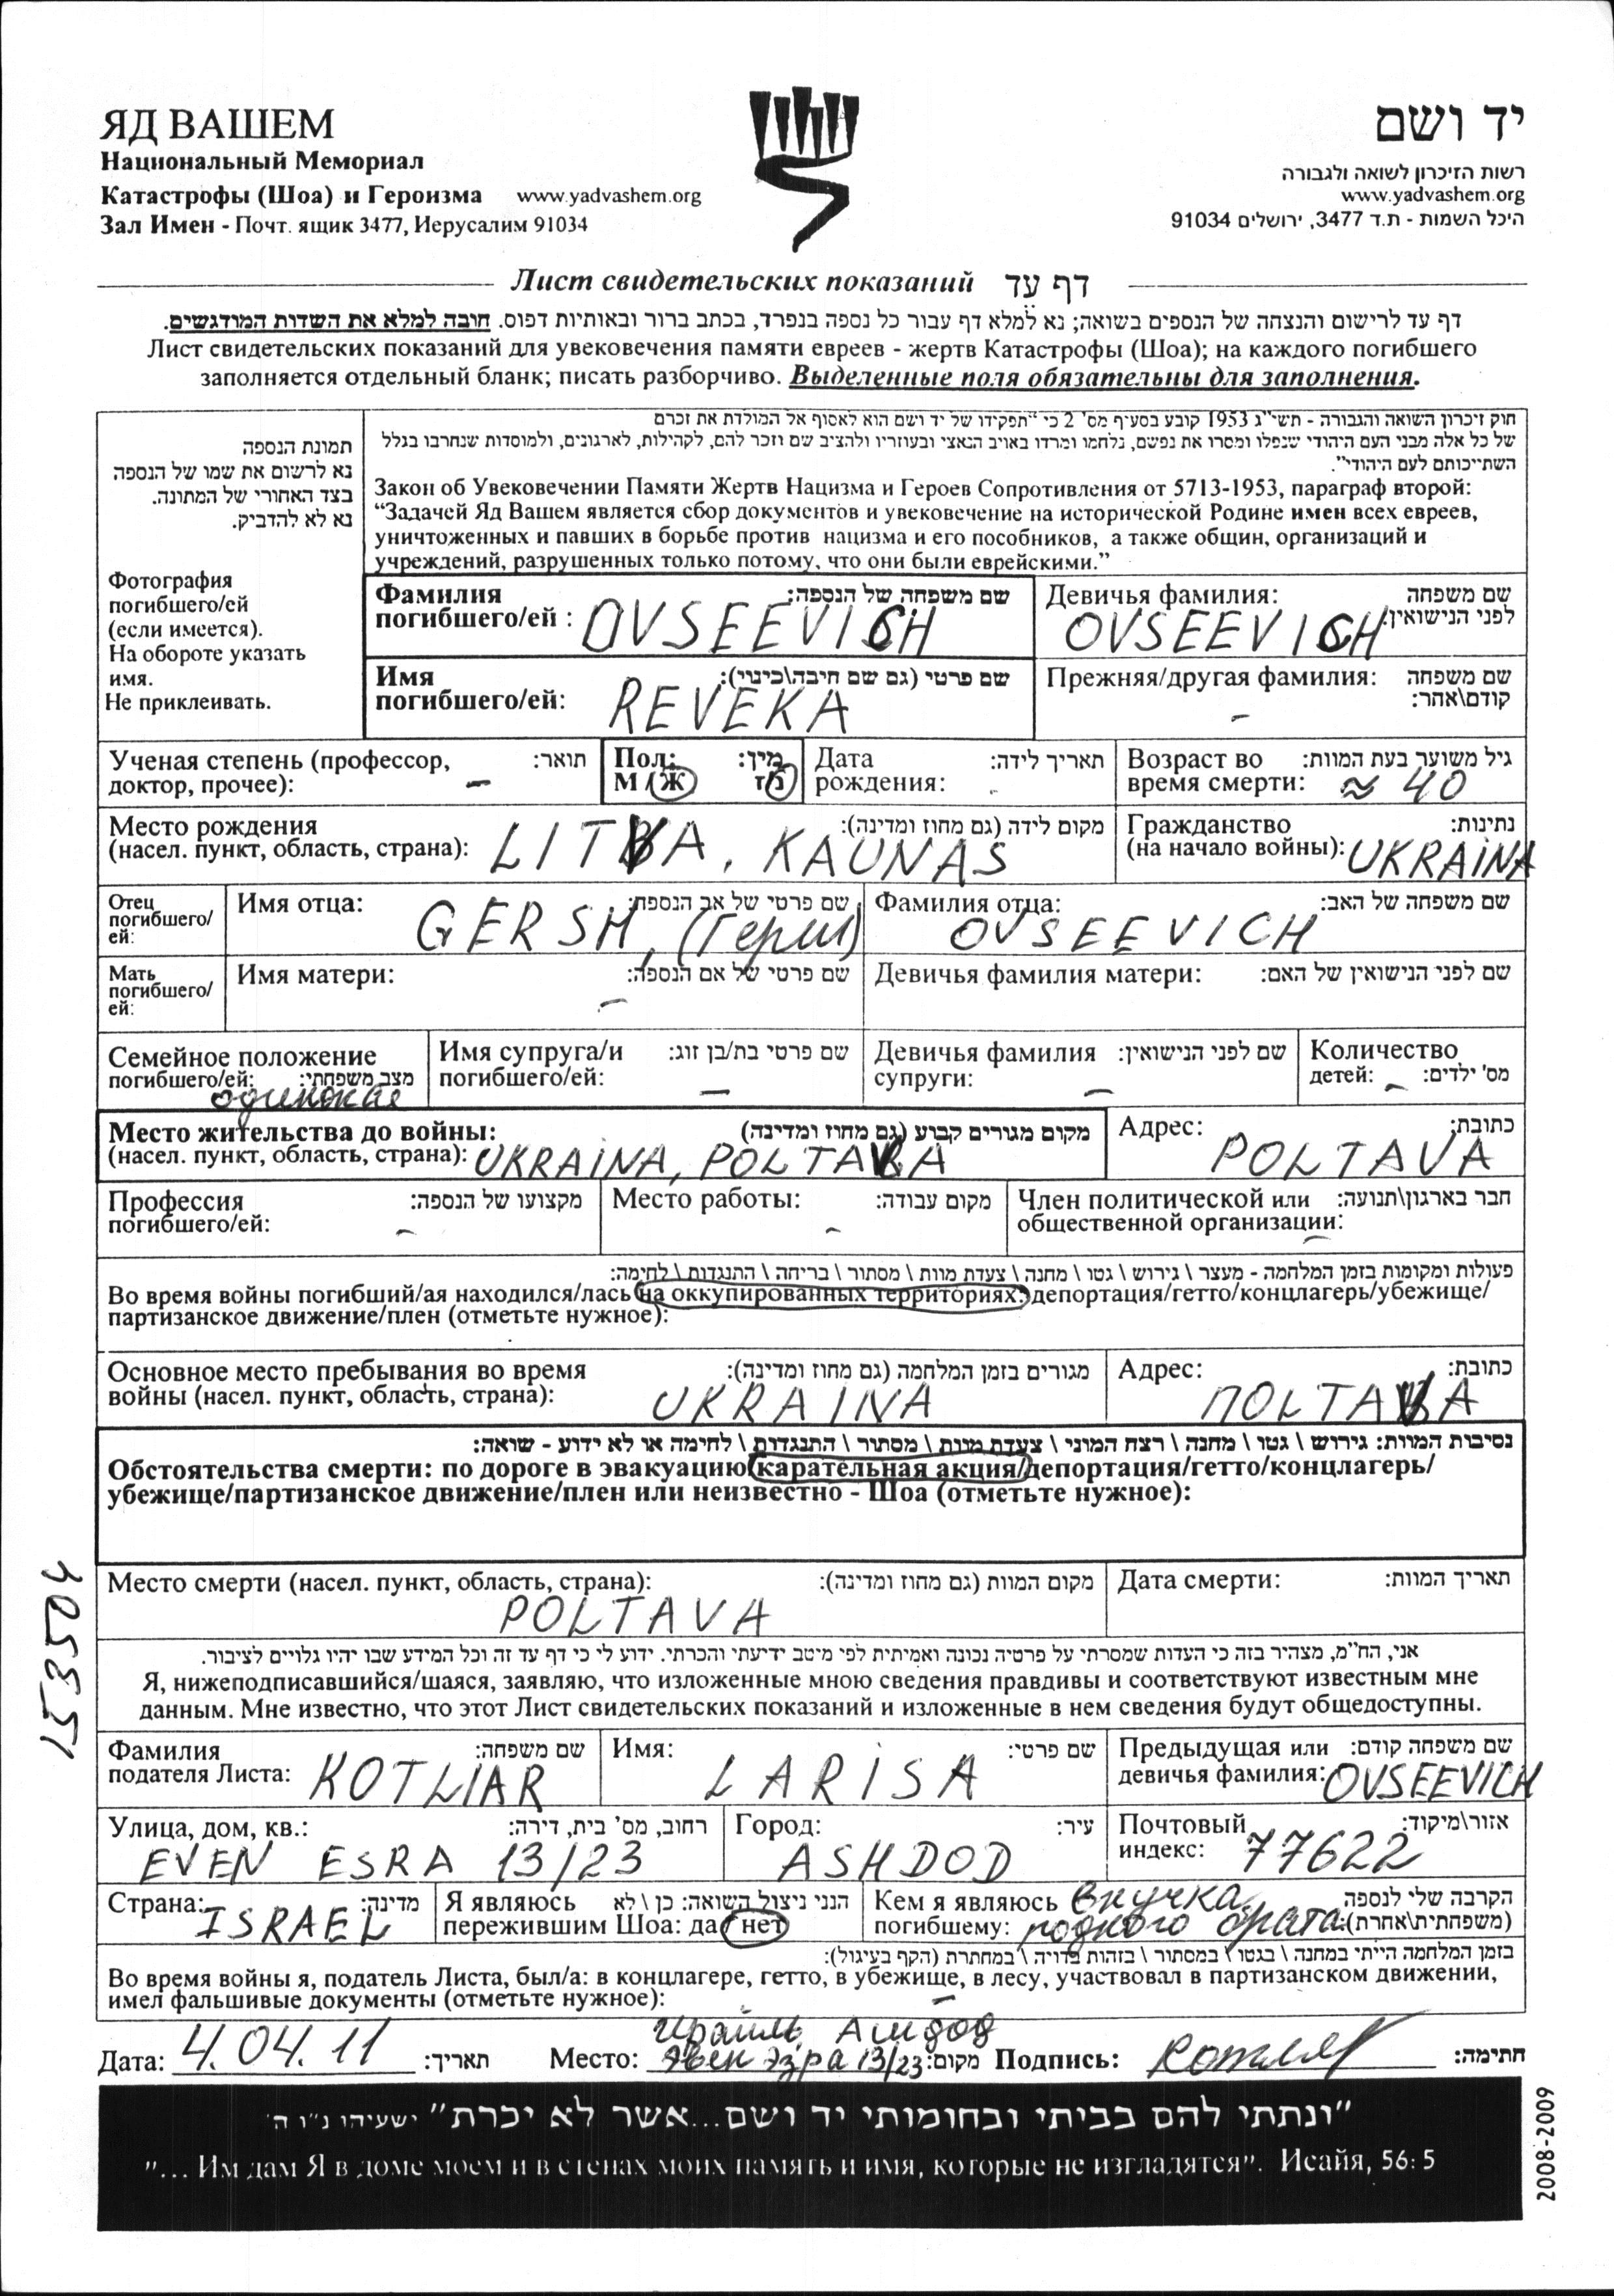 ЯД ВАШЕМ
Национальный Мемориал
Катастрофы (Шоа) и Героизма www.yadvashem.org
Зал Имен - Почт. ящик 3477, Иерусалим 91034
יד ושם
רשות הזיכרון לשואה ולגבורה
www.yadvashem.org
היכל השמות - ת.ד 3477, ירושלים 91034
Лист свидетельских показаний דף עד
דף עד לרישום והנצחה של הנספים בשואה; נא למלא דף עבור כל נספה בנפרד, בכתב ברור ובאותיות דפוס. חובה למלא את השדות המודגשים.
Лист свидетельских показаний для увековечения памяти евреев - жертв Катастрофы (Шоа); на каждого погибшего
заполняется отдельный бланк; писать разборчиво. Выделенные поля обязательны для заполнения.
תמונת הנספה
נא לרשום את שמו של הנספה
בצד האחורי של המתונה.
נא לא להדביק.
Фотография
погибшего/ей
(если имеется).
На обороте указать
имя.
Не приклеивать.
חוק זיכרון השואה והגבורה - תשי"ג 1953 קובע בסעיף מס' 2 כי "תפקידו של יד ושם הוא לאסוף אל המולדת את זכרם
של כל אלה מבני העם היהודי שנפלו ומסרו את נפשם, נלחמו ומרדו באויב הנאצי ובעוזריו ולהציב שם וזכר להם, לקהילות, לארגונים, ולמוסדות שנחרבו בגלל
השתייכותם לעם היהודי".
Закон об Увековечении Памяти Жертв Нацизма и Героев Сопротивления от 5713-1953, параграф второй:
“Задачей Яд Вашем является сбор документов и увековечение на исторической Родине имен всех евреев,
уничтоженных и павших в борьбе против нацизма и его пособников, а также общин, организаций и
учреждений, разрушенных только потому, что они были еврейскими.”
Фамилия שם משפחה של הנספה:
погибшего/ей : OVSEEVICH
Девичья фамилия: שם משפחה
לפני הנישואין:
OVSEEVICH
Имя שם פרטי (גם שם חיבה\כינוי):
погибшего/ей: REVEKA
Прежняя/другая фамилия: שם משפחה
קודם\אהר:
-
Ученая степень (профессор, תואר:
доктор, прочее): -
Пол: מין:
М /Ж ז/נ
Дата תאריך לידה:
рождения:
Возраст во גיל משוער בעת המוות:
время смерти: ≈ 40
Место рождения מקום לידה (גם מחוז ומדינה):
(насел. пункт, область, страна): LITVA, KAUNAS
Гражданство נתינות:
(на начало войны): UKRAINA
Отец
погибшего/
ей:
Имя отца: שם פרטי של אב הנספה:
GERSH, (Герш)
Фамилия отца: שם משפחה של האב:
OVSEEVICH
Мать
погибшего/
ей:
Имя матери: שם פרטי של אם הנספה:
-
Девичья фамилия матери: שם לפני הנישואין של האם:
Семейное положение
погибшего/ей: מצב משפחתי:
одинокая
Имя супруга/и שם פרטי בת/בן זוג:
погибшего/ей: -
Девичья фамилия שם לפני הנישואין:
супруги: -
Количество
детей: - מס' ילדים:
Место жительства до войны: מקום מגורים קבוע (גם מחוז ומדינה)
(насел. пункт, область, страна): UKRAINA, POLTAVA
Адрес: כתובת:
POLTAVA
Профессия מקצועו של הנספה:
погибшего/ей: -
Место работы: מקום עבודה:
-
Член политической или חבר בארגון\תנועה:
общественной организации:
-
פעולות ומקומות בזמן המלחמה - מעצר \ גירוש \ גטו \ מחנה \ צעדת מוות \ מסתור \ בריחה \ התנגדות \ לחימה:
Во время войны погибший/ая находился/лась на оккупированных территориях: депортация/гетто/концлагерь/убежище/
партизанское движение/плен (отметьте нужное):
Основное место пребывания во время מגורים בזמן המלחמה (גם מחוז ומדינה):
войны (насел. пункт, область, страна): UKRAINA
Адрес: כתובת:
ПOLTAVA
נסיבות המוות: גירוש \ גטו \ מחנה \ רצח המוני \ צעדת מוות \ מסתור \ התנגדות \ לחימה או לא ידוע - שואה:
Обстоятельства смерти: по дороге в эвакуацию/карательная акция/депортация/гетто/концлагерь/
убежище/партизанское движение/плен или неизвестно - Шоа (отметьте нужное):
Место смерти (насел. пункт, область, страна): מקום המוות (גם מחוז ומדינה):
POLTAVA
Дата смерти: תאריך המוות:
אני, הח"מ, מצהיר בזה כי העדות שמסרתי על פרטיה נכונה ואמיתית לפי מיטב ידיעתי והכרתי. ידוע לי כי דף עד זה וכל המידע שבו יהיו גלויים לציבור.
Я, нижеподписавшийся/шаяся, заявляю, что изложенные мною сведения правдивы и соответствуют известным мне
данным. Мне известно, что этот Лист свидетельских показаний и изложенные в нем сведения будут общедоступны.
Фамилия שם משפחה:
подателя Листа: KOTLIAR
Имя: שם פרטי:
LARISA
Предыдущая или שם משפחה קודם:
девичья фамилия: OVSEEVICH
Улица, дом, кв.: רחוב, מס' בית, דירה:
EVEN ESRA 13/23
Город: עיר:
ASHDOD
Почтовый אזור\מיקוד:
индекс: 77622
Страна: מדינה:
ISRAEL
Я являюсь הנני ניצול השואה: כן \ לא
пережившим Шоа: да / нет
Кем я являюсь внучка הקרבה שלי לנספה
погибшему: родного брата (משפחתית\אחרת):
בזמן המלחמה הייתי במחנה \ בגטו \ במסתור \ בזהות בדויה \ במחתרת (הקף בעיגול):
Во время войны я, податель Листа, был/а: в концлагере, гетто, в убежище, в лесу, участвовал в партизанском движении,
имел фальшивые документы (отметьте нужное): -
Израиль Ашдод
Дата: 4.04.11 תאריך: Место: Эвен Эзра 13/23 מקום: Подпись: Котляр חתימה:
"ונתתי להם בביתי ובחומותי יד ושם...אשר לא יכרת" ישעיהו נ"ו ה'
"... Им дам Я в доме моем и в стенах моих память и имя, которые не изгладятся". Исайя, 56: 5
153504
2008-2009